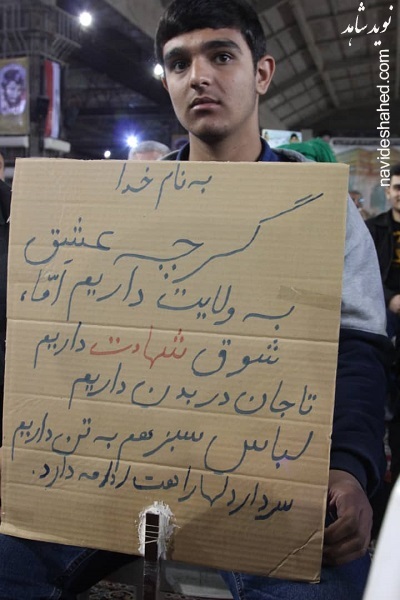 نوید شاهد
navideshahed.com
به نام خدا
گرچه عشق
به ولایت داریم امّا،
شوق شهادت داریم
تا جان در بدن داریم
لباس سبز هم به تن داریم
سردار دلها راهت ادامه دارد.